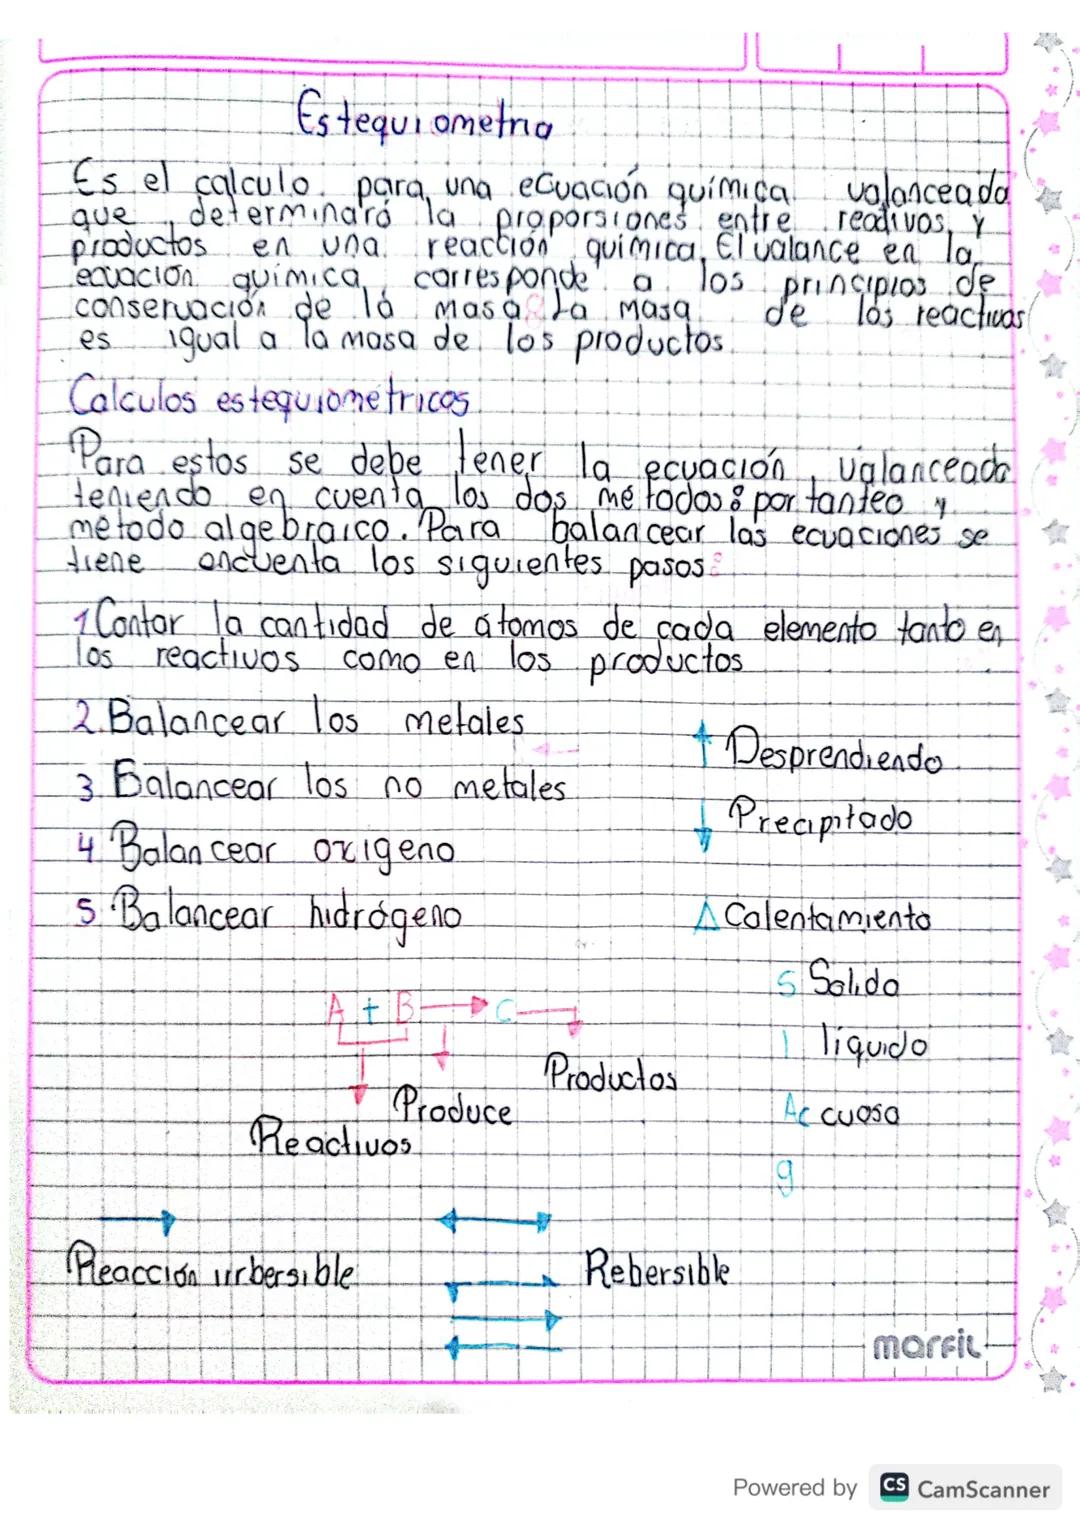 Estequiometria
Es el calculo para una ecuación química valanceada
que determinará la proporsiones entre reactivos y
productos en una reacción química, El valance en la
ecuación química, corresponde a los principios de
conservación de la masa: La masa de los reactivos
es igual a la masa de los productos.
Calculos estequiometricos
Para estos se debe tener la ecuación valanceada
teniendo en cuenta los dos métodos: por tanteo y
metodo algebraico. Para balancear las ecuaciones se
tiene encuenta los siguientes pasos:
1 Contar la cantidad de átomos de cada elemento tanto en
los reactivos como en los productos
2. Balancear los metales
3. Balancear los no metales
4. Balancear oxigeno
5. Balancear hidrógeno
↑ Desprendiendo
↓ Precipitado
Δ Calentamiento
S Solido
l líquido
Ac cuosa
g
A + B → C →
Productos
Produce
Reactivos
Reacción irrbersible
Rebersible
marfil
Powered by CS CamScanner